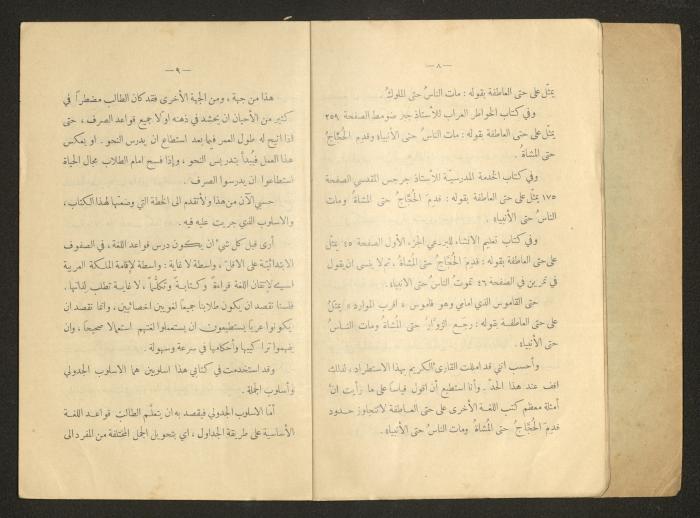 — ٨ —
يمثّل على حتى العاطفة بقوله : مات الناسُ حتى الملوكُ .
وفي كتاب الخواطر العراب للأستاذ جبر ضومط الصفحة ٢٥٩
يمثّل على حتى العاطفة بقوله : مات الناسُ حتى الأنبياء وقدِم الحُجَّاجُ
حتى المشاةُ .
وفي كتاب الخدمة المدرسيّة للأستاذ جرجس المقدسي الصفحة
١٧٥ يمثّل على حتى العاطفة بقوله : قدِمَ الحُجَّاجُ حتى المشاةُ ومات
الناسُ حتى الأنبياء .
وفي كتاب تعليم الانشاء للبرزعي الجزء الأول الصفحة ٤٥ يمثّل
على حتى العاطفة بقوله : قدِمَ الحُجَّاجُ حتى المُشاة . ثم لا ينسى ان يقول
في تمرين في الصفحة ٤٦ تموتُ الناسُ حتى الأنبياء .
حتى القاموس الذي امامي وهو قاموس « اقرب الموارد » يمثلُ
على حتى العاطفة بقوله : رجَع الزوَّارُ حتى المُشاةُ ومات النـاسُ
حتى الأنبياء .
وأحسب انني قد امللت القارئ الكريم بهذا الاستطراد ، لذلك
اقف عند هذا الحدّ . وأنا استطيع أن اقول قياساً على ما رأيت انَّ
أمثلة معظم كتب اللغة الأخرى على حتى العاطفة لا تتجاوز حدود
قدِمَ الحُجَّاجُ حتى المُشاةُ ومات الناسُ حتى الأنبياء .
— ٩ —
هذا من جهة ، ومن الجهة الأخرى فقد كان الطالب مضطراً في
كثير من الأحيان ان يحشد في ذهنه اولاً جميع قواعد الصرف ، حتى
اذا اتيح له طول العمر فيما بعد استطاع ان يدرس النحو . او يعكس
هذا العمل فيُبدأ بتدريس النحو ، وإذا فسح امام الطلاب مجال الحياة
استطاعوا ان يدرسوا الصرف .
حسبي الآن من هذا ولأتقدم الى الخطة التي وضعتها لهذا الكتاب ،
والاسلوب الذي جريت عليه فيه .
أرى قبل كل شيء ان يكون درس قواعد اللغة ، في الصفوف
الابتدائيّة على الاقلّ ، واسطة لا غاية : واسطة لإقامة الملكة العربية
اي لإتقان اللغة قراءةً وكتابـةً وتكلُّمـاً ، لا غايـة تطلب لذاتهـا .
فلسنا نقصد ان يكون طلابنا جميعاً لغويين اخصائيين ، وانما نقصد ان
يكونوا عرباً يستطيعون ان يستعملوا لغتهم استعمالاً صحيحاً ، وان
يفهموا تراكيبها وأحكامها في سرعة وسهولة .
وقد استخدمت في كتابي هذا اسلوبين هما الاسلوب الجدولي
وأسلوب الجملة .
أمّا الاسلوب الجدولي فيقصد به ان يتعلّم الطالب قواعـد اللغـة
الأساسية على طريقة الجداول ، اي بتحويل الجمل المختلفة من المفرد الى